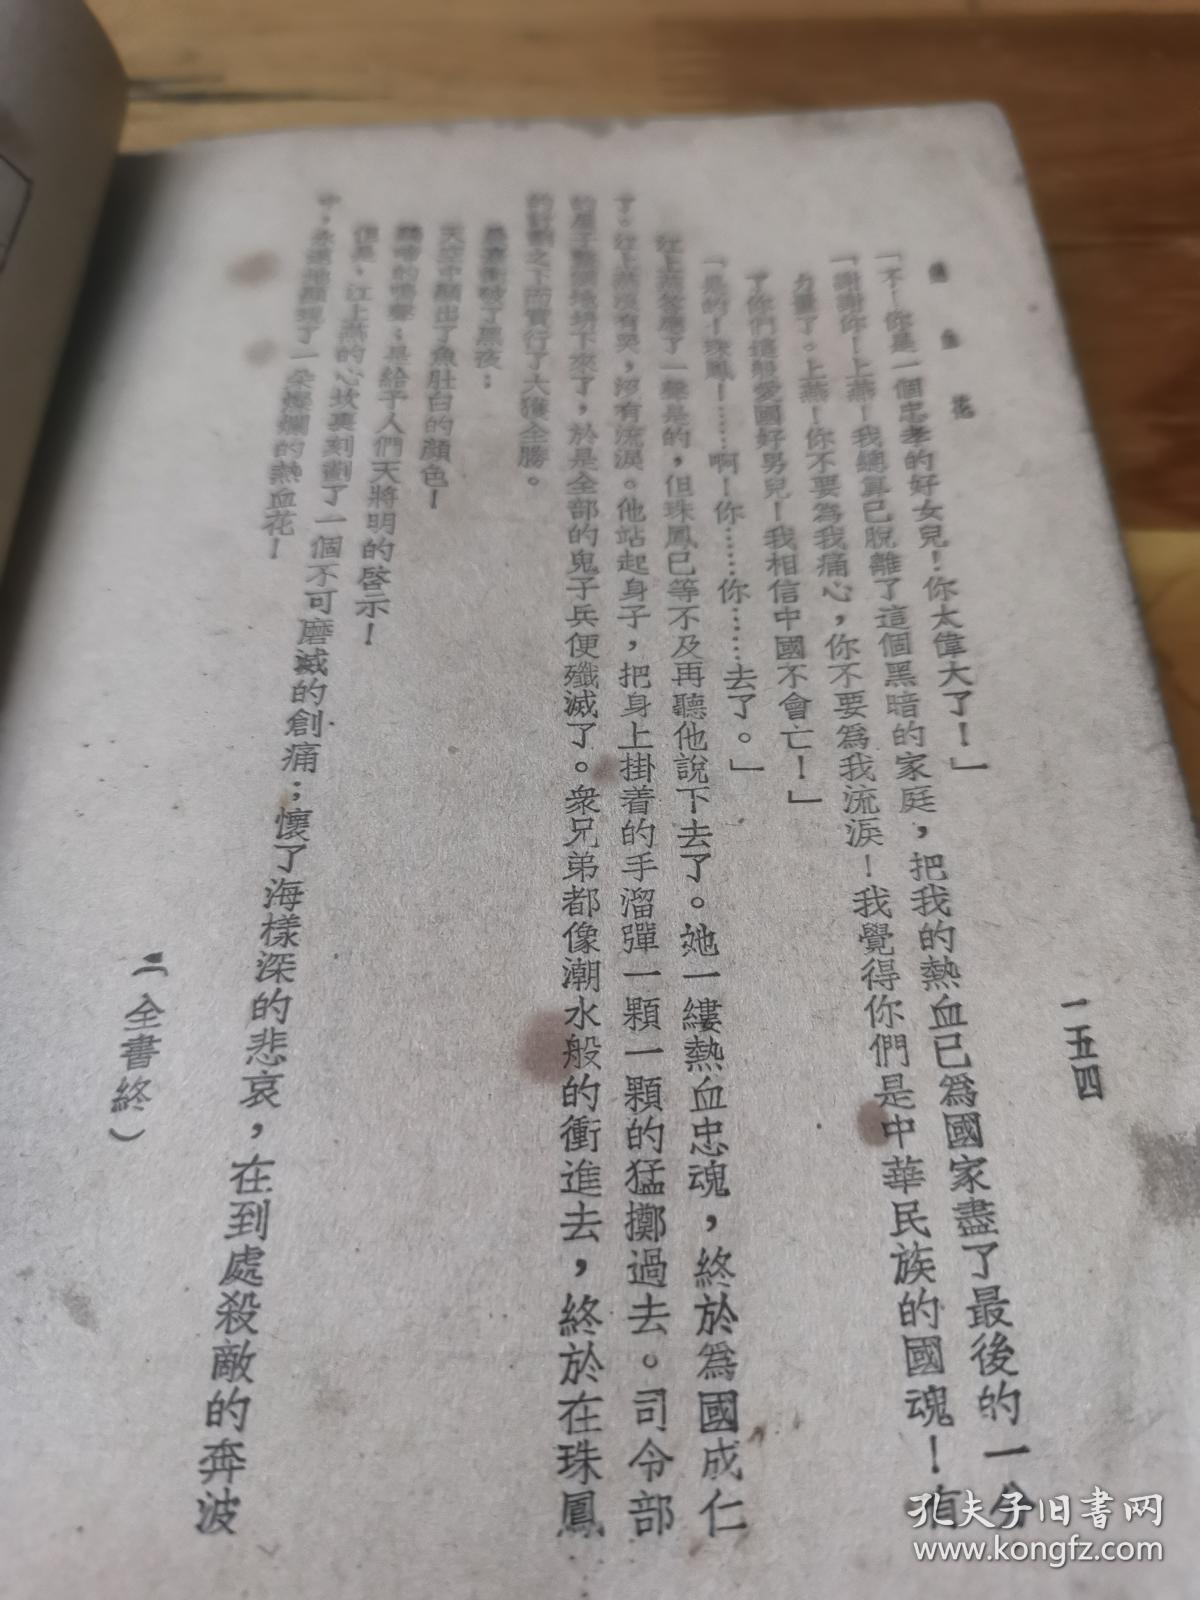 血花
一五四
「不！你是一個忠孝的好女兒！你太偉大了！」
「謝謝你！上燕！我總算已脫離了這個黑暗的家庭，把我的熱血已為國家盡了最後的一分
力量了。上燕！你不要為我痛心，你不要為我流淚！我覺得你們是中華民族的國魂！有
了你們這般愛國好男兒！我相信中國不會亡！」
「是的！珠鳳！……啊！你……你……去了。」
江上燕答應了一聲是的，但珠鳳已等不及再聽他說下去了。她一縷熱血忠魂，終於為國成仁
了。江上燕沒有哭，沒有流淚。他站起身子，把身上掛着的手溜彈一顆一顆的猛擲過去。司令部
的屋子整個地坍下來了，於是全部的鬼子兵便殲滅了。衆兄弟都像潮水般的衝進去，終於在珠鳳
的計劃之下而實行了大獲全勝。
衝破了黑夜；
天空中顯出了魚肚白的顏色！
的鳴聲；是給予人們天將明的啓示！
但是，江上燕的心坎裏刻劃了一個不可磨滅的創痛；懷了海樣深的悲哀，在到處殺敵的奔波
中，永遠地顯現了一朵燦爛的熱血花！
（全書終）
孔夫子旧书网
www.kongfz.com